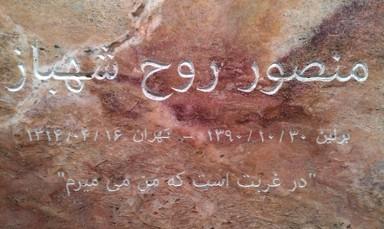 منصور روح شهباز
برلین ۱۳۹۰/۱۰/۳۰ - تهران ۱۳۱۴/۰۴/۱۶
"در غربت است که من می میرم"